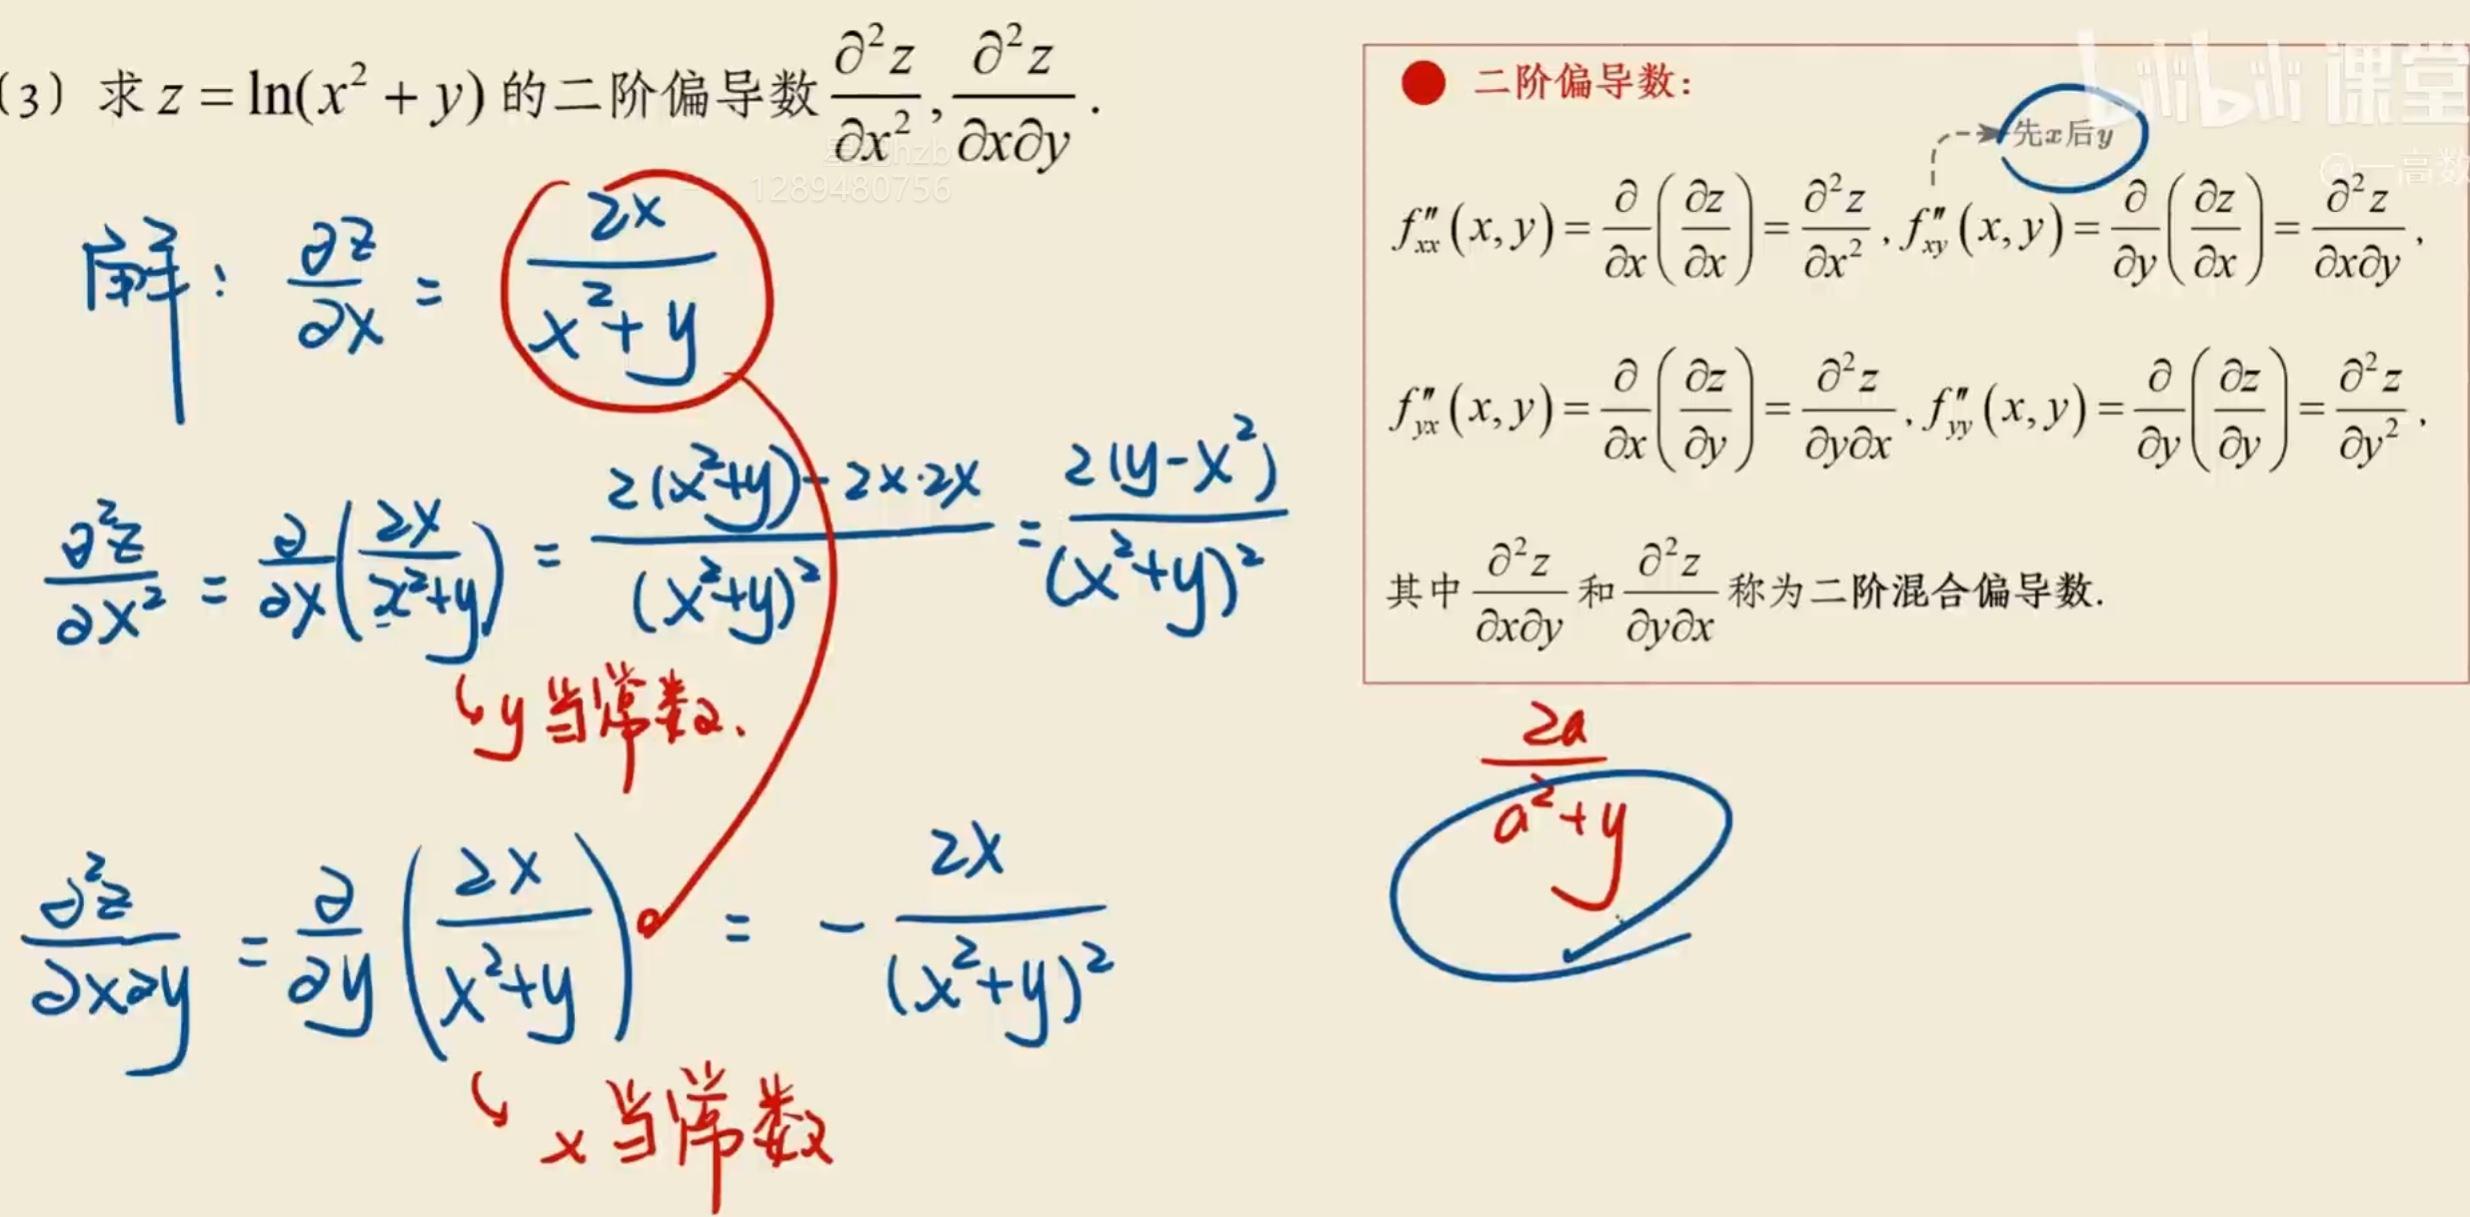 (3) 求 z = ln(x² + y) 的二阶偏导数 ∂²z/∂x², ∂²z/∂x∂y.
1289480756
解: ∂z/∂x = 2x/(x²+y)
∂²z/∂x² = ∂/∂x (2x/(x²+y)) = (2(x²+y) - 2x·2x)/(x²+y)² = 2(y-x²)/(x²+y)²
y当常数.
∂²z/∂x∂y = ∂/∂y (2x/(x²+y)) = - 2x/(x²+y)²
x当常数
bilibili 课堂
@一高数
二阶偏导数:
先x后y
f″xx (x, y) = ∂/∂x (∂z/∂x) = ∂²z/∂x², f″xy (x, y) = ∂/∂y (∂z/∂x) = ∂²z/∂x∂y,
f″yx (x, y) = ∂/∂x (∂z/∂y) = ∂²z/∂y∂x, f″yy (x, y) = ∂/∂y (∂z/∂y) = ∂²z/∂y²,
其中 ∂²z/∂x∂y 和 ∂²z/∂y∂x 称为二阶混合偏导数.
2a/(a²+y)